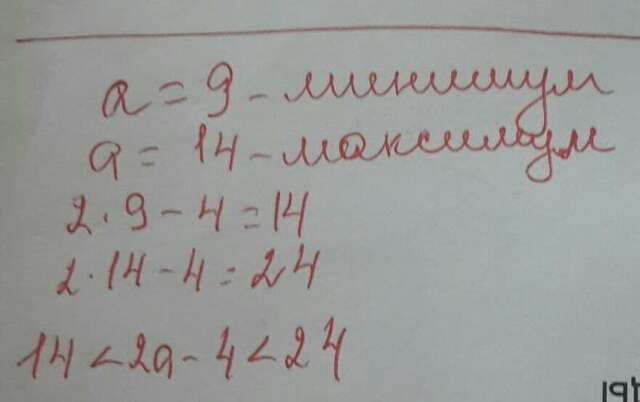 a = 9 - минимум
a = 14 - максимум
2 · 9 - 4 = 14
2 · 14 - 4 = 24
14 < 2a - 4 < 24